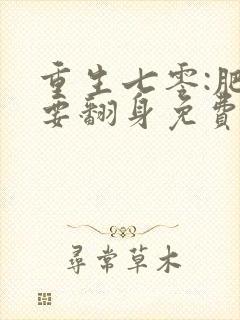 重生七零:肥
要翻身免費
尋常草木